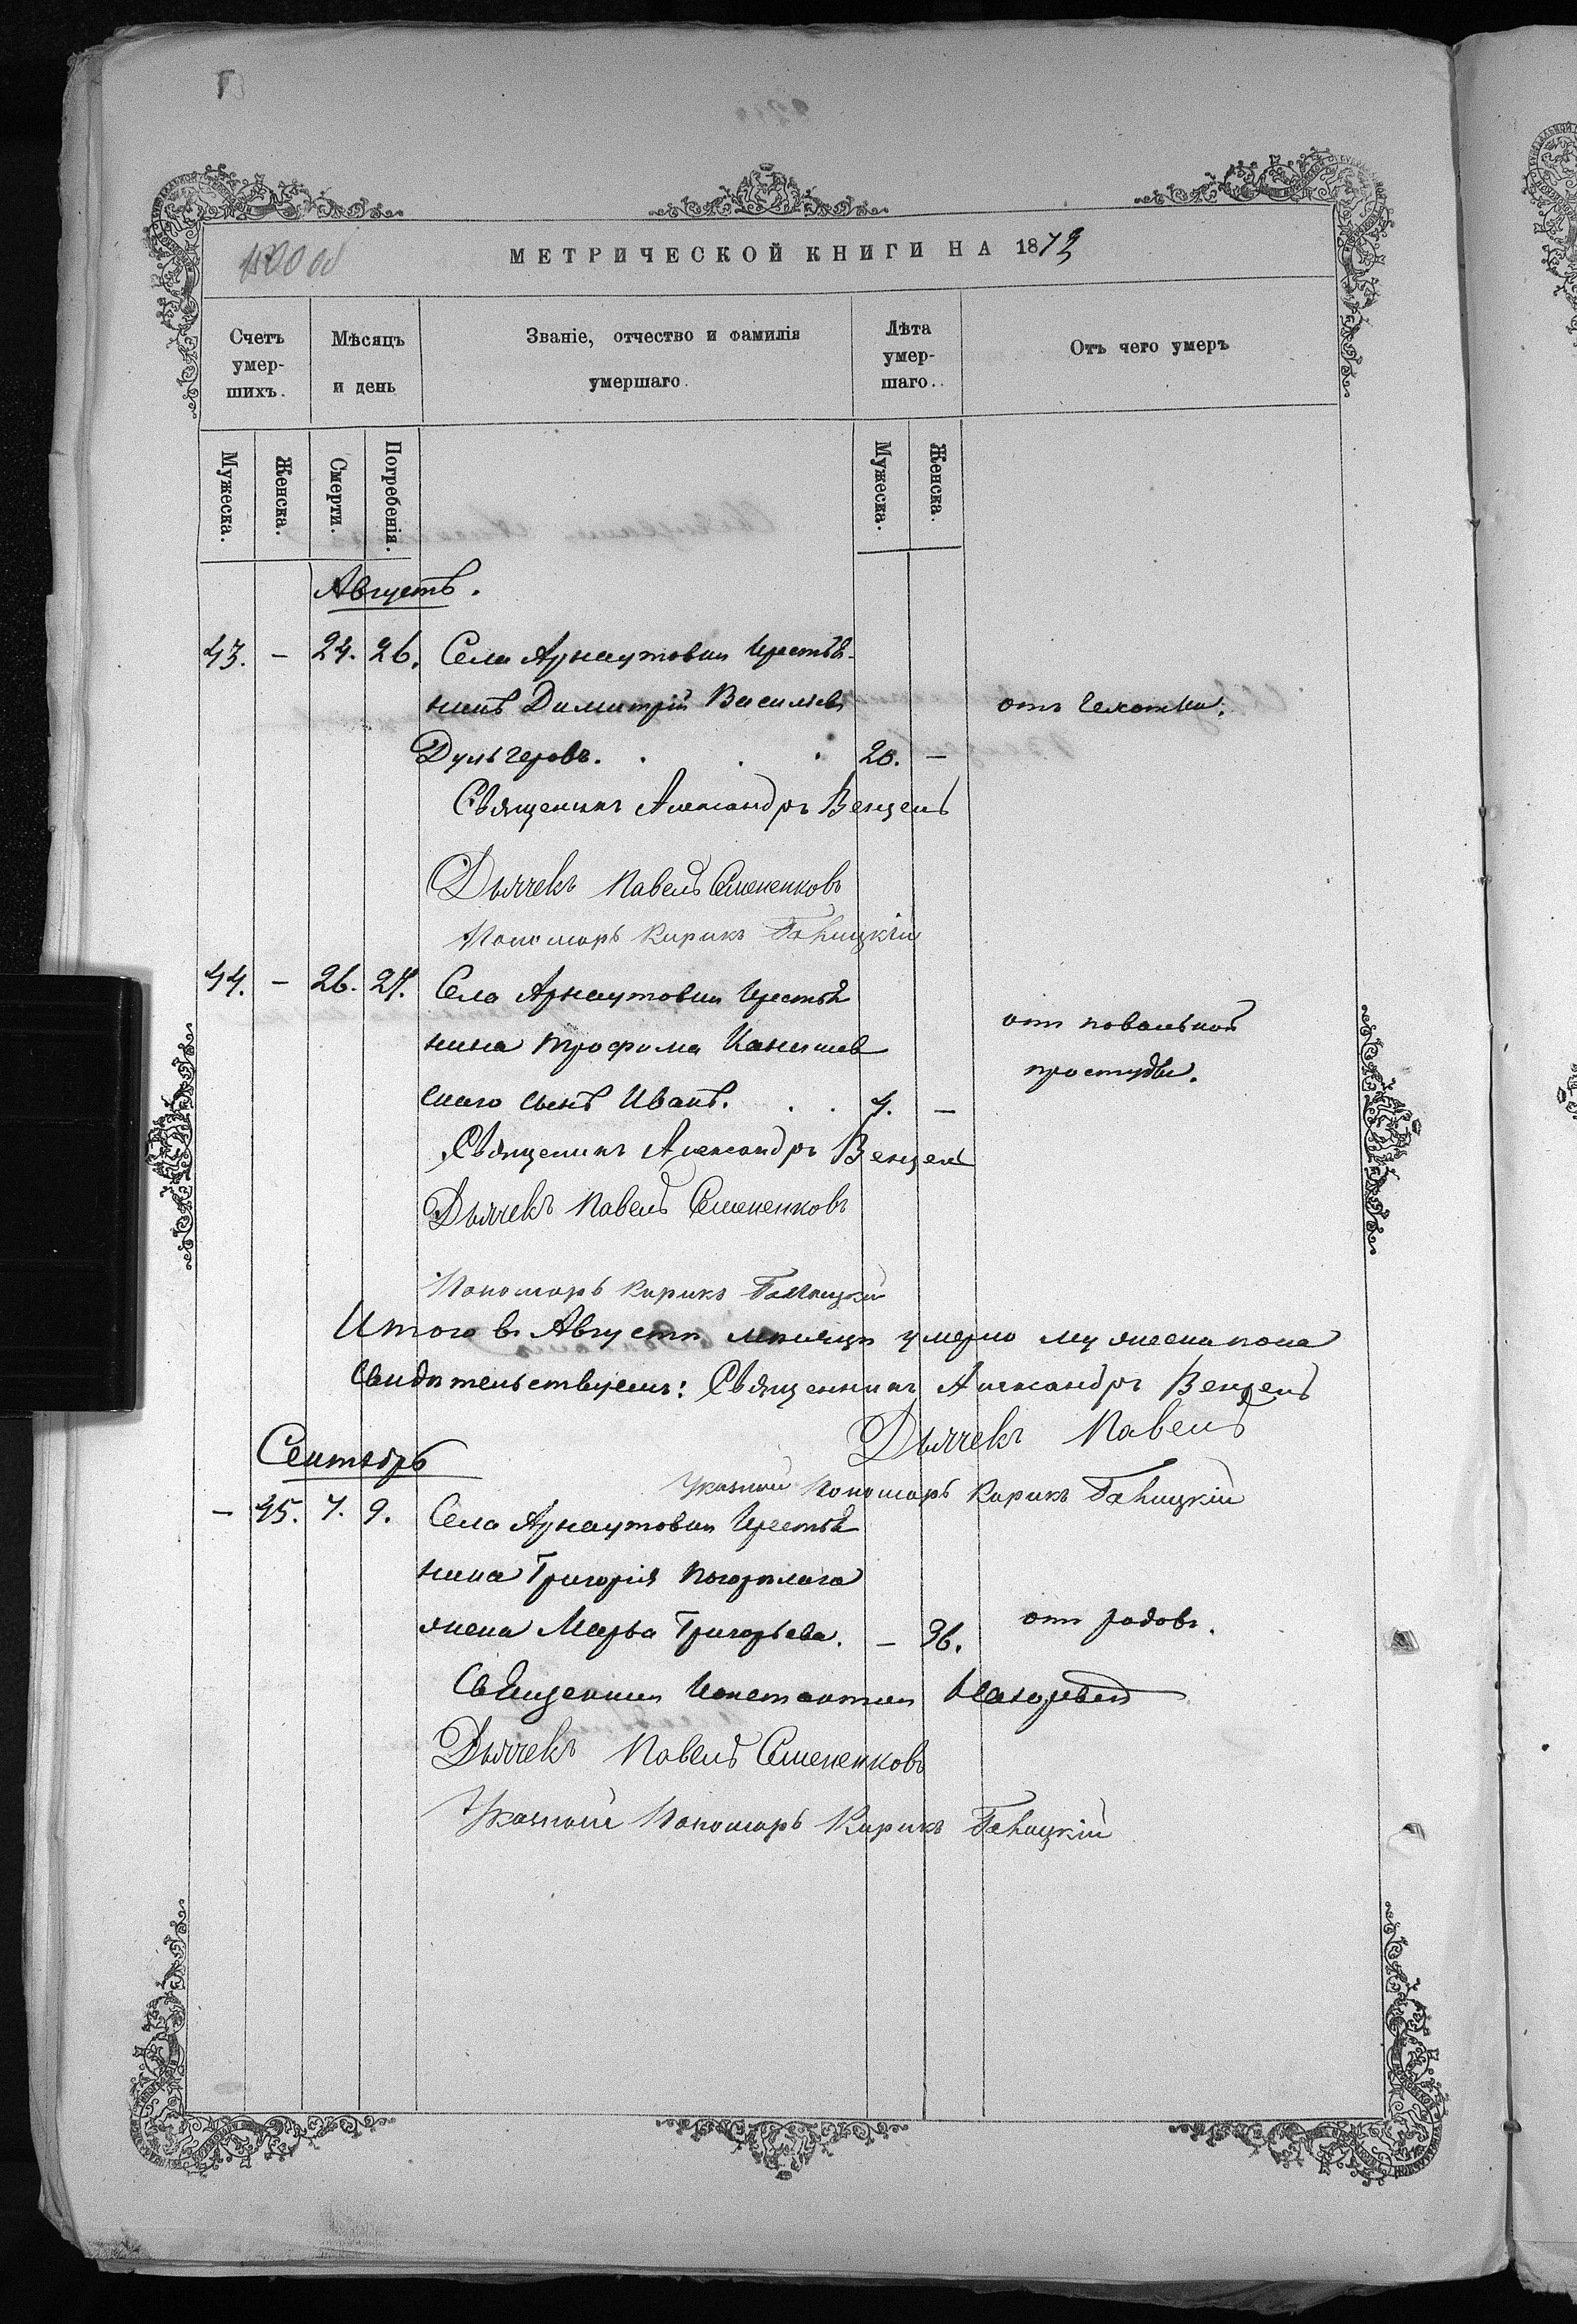 МЕТРИЧЕСКОЙ КНИГИ НА 1872
Счетъ умер-шихъ.
Мѣсяцъ и день
Званіе, отчество и фамилія умершаго.
Лѣта умер-шаго..
Отъ чего умеръ
Мужеска.
Женска.
Смерти.
Погребенія.
Мужеска.
Женска.
Августъ.
43. – 24. 26. Села Арнаутовки Крестья-
нинъ Димитрій Васильевъ отъ Чехотки.
Дульгеровъ. . . . 20. –
Священникъ Александръ Венцель
Дьячекъ Павелъ Семененковъ
Пономарь Кирикъ
44. – 26. 27. Села Арнаутовки Крестья
нина Трофима отъ повальной
простуды.
скаго сынъ Иванъ. . . 4. –
Священникъ Александръ Венцель
Дьячекъ Павелъ Семененковъ
Пономарь Кирикъ
Итого въ Августѣ мѣсяцѣ умерло мужеска пола
Свидѣтельствуемъ: Священникъ Александръ Венцель
Дьячекъ Павелъ
Сентябрь
Указный Пономарь Кирикъ
– 45. 7. 9. Села Арнаутовки Крестья
нина Григорія Погорѣлаго
жена Марѳа Григорьева. – 36. отъ родовъ.
Священникъ Константинъ
Дьячекъ Павелъ Семененковъ
Указный Пономарь Кирикъ